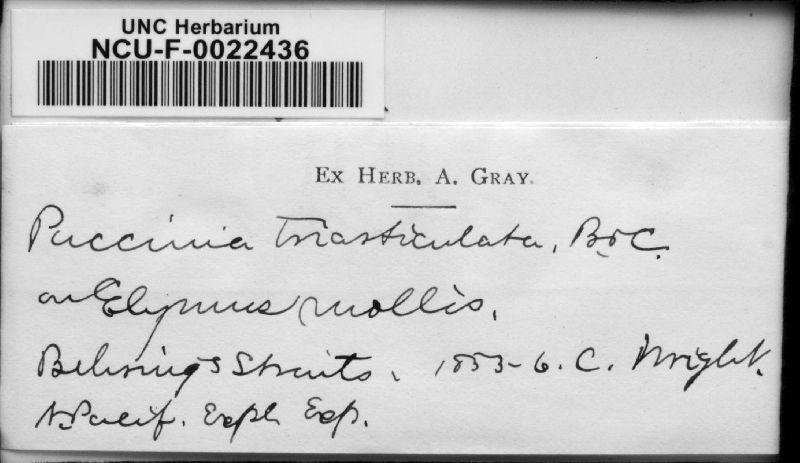 UNC Herbarium
NCU-F-0022436
EX HERB. A. GRAY.
Puccinia triarticulata, B & C.
on Elymus mollis.
Behring's Straits. 1853-6. C. Wright.
N. Pacif. Expl. Exp.